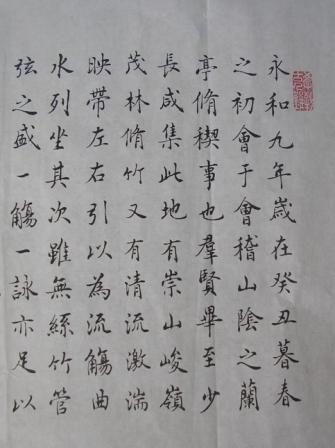 永和九年歲在癸丑暮春
之初會于會稽山陰之蘭
亭脩稧事也羣賢畢至少
長咸集此地有崇山峻嶺
茂林脩竹又有清流激湍
映帶左右引以為流觴曲
水列坐其次雖無絲竹管
弦之盛一觴一詠亦足以